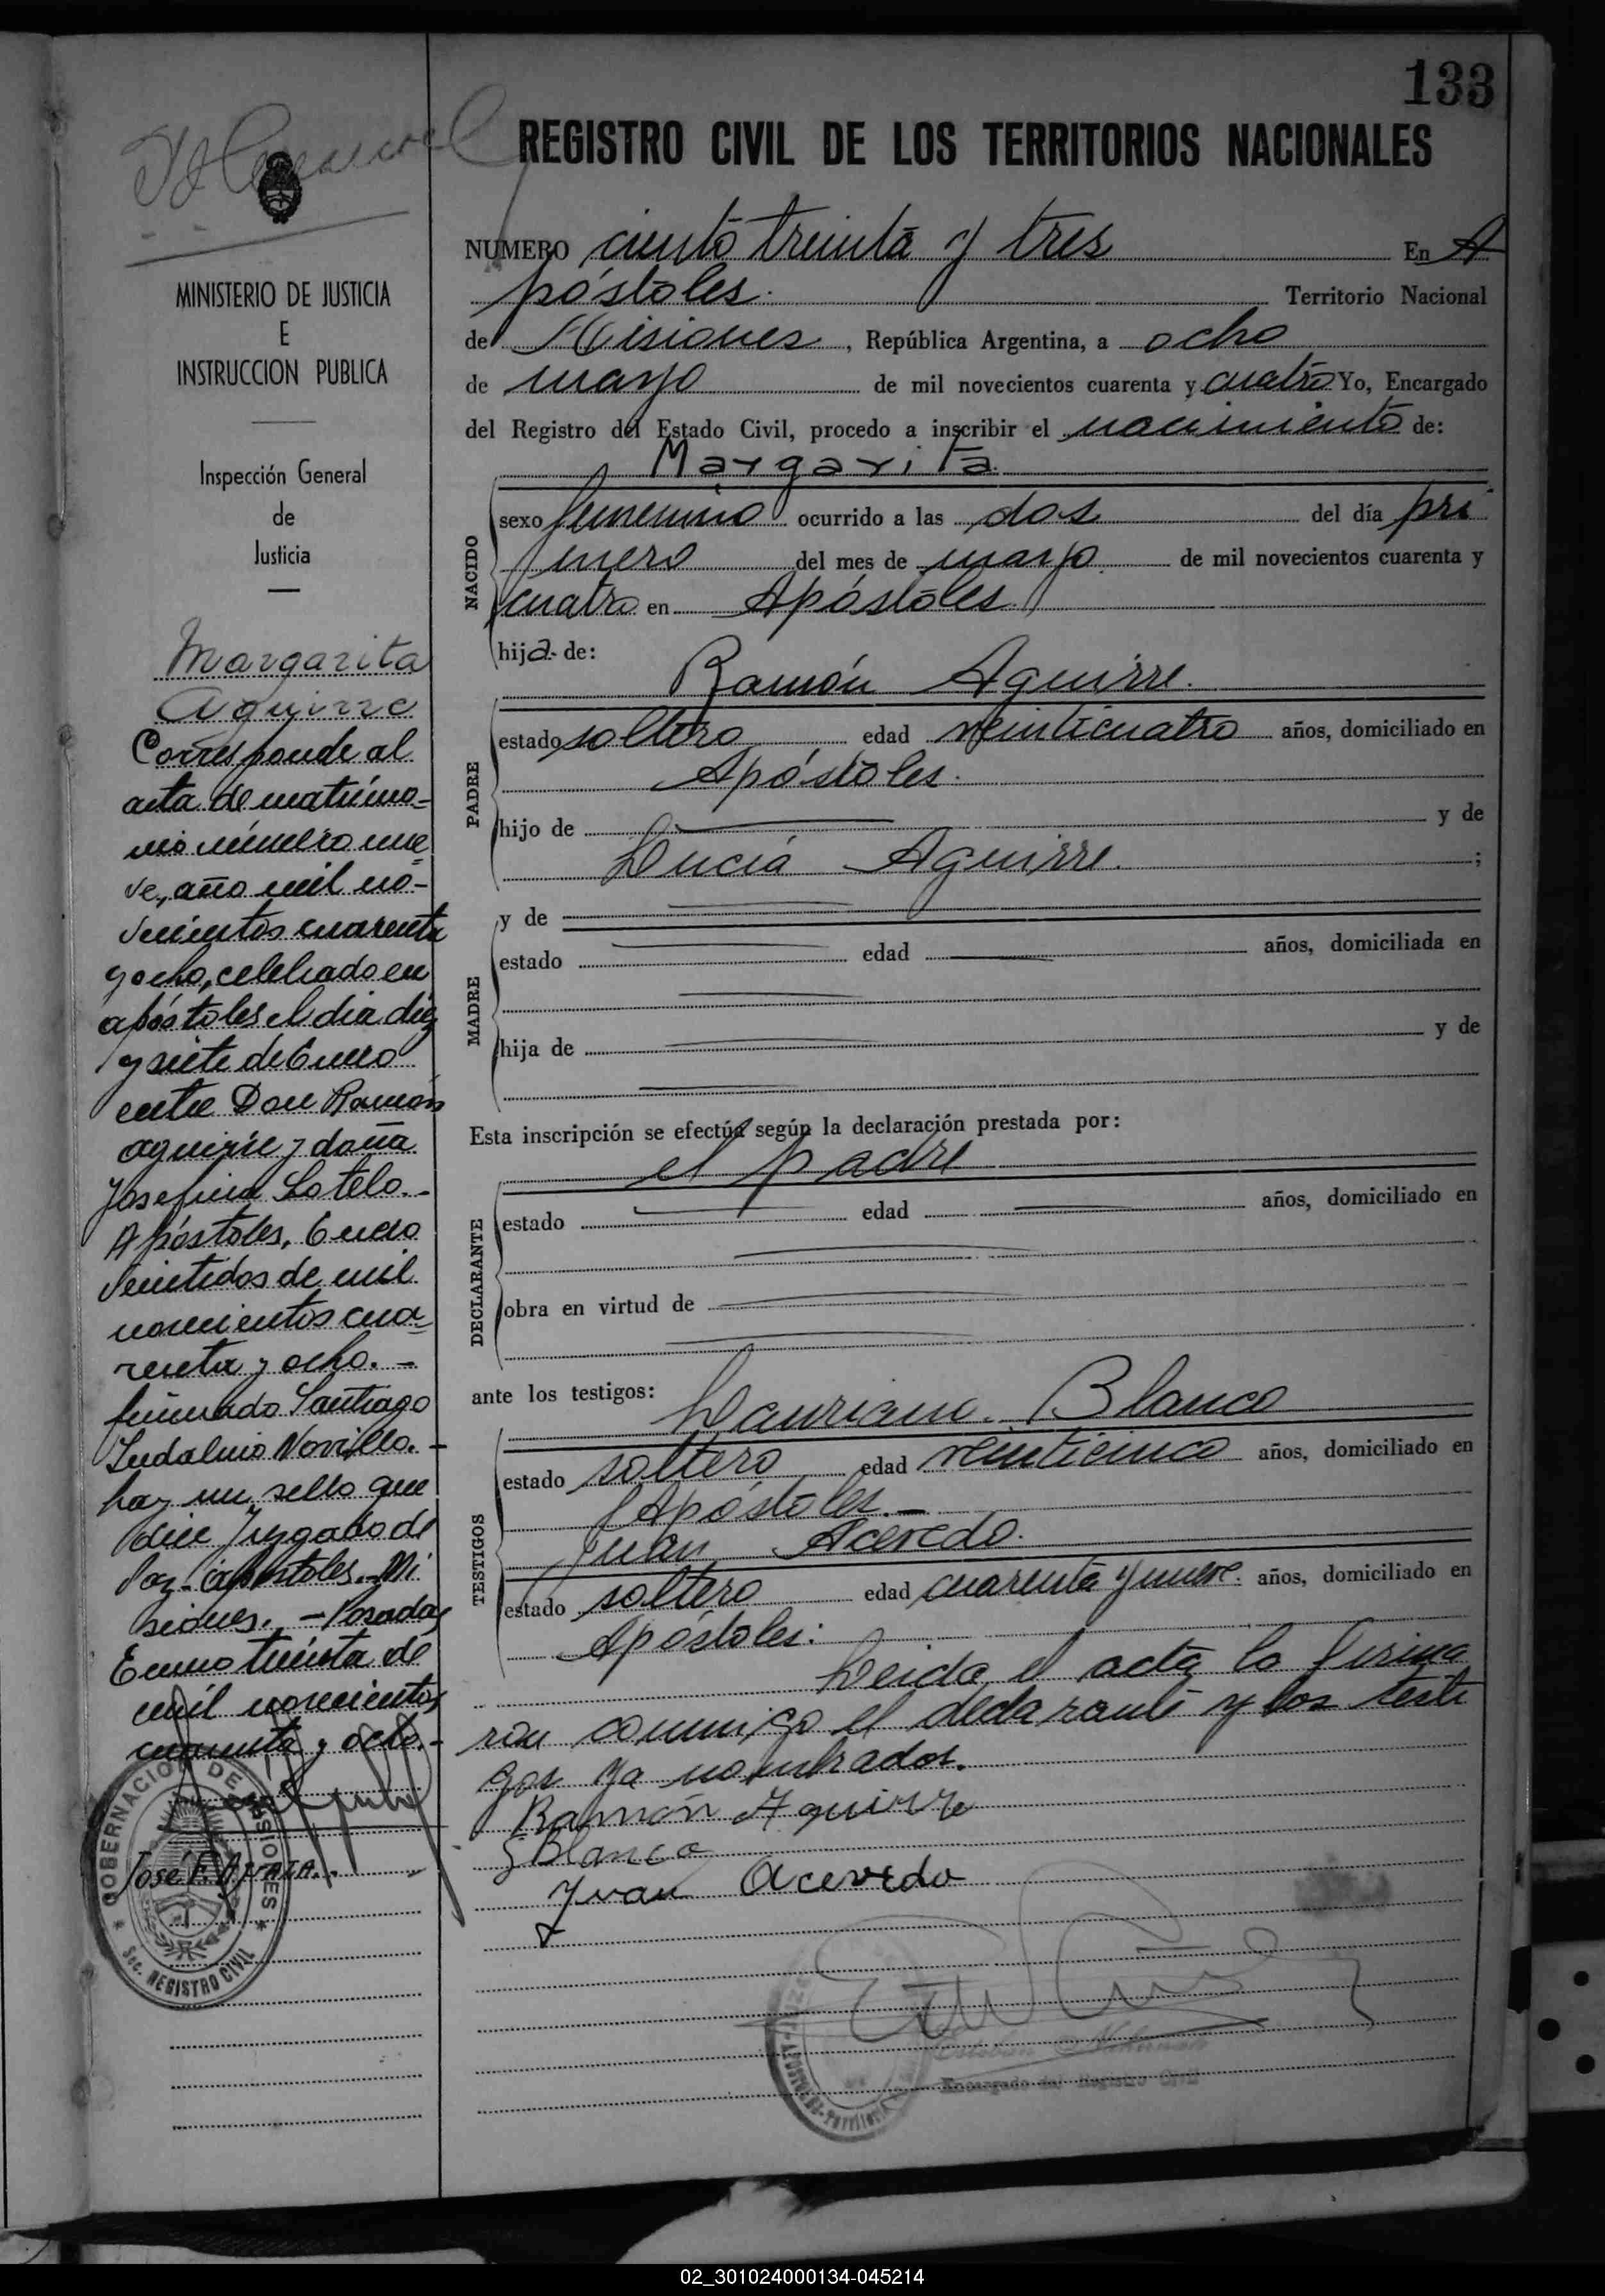 133
REGISTRO CIVIL DE LOS TERRITORIOS NACIONALES
NUMERO ciento treinta y tres En A
póstoles. Territorio Nacional
de Misiones, República Argentina, a ocho
de mayo de mil novecientos cuarenta y cuatro Yo, Encargado
del Registro del Estado Civil, procedo a inscribir el nacimiento de:
Margarita
NACIDO
sexo femenino ocurrido a las dos del día pri
mero del mes de mayo de mil novecientos cuarenta y
cuatro en Apóstoles.
hija de:
Ramón Aguirre.
PADRE
estado soltero edad veinticuatro años, domiciliado en
Apóstoles.
hijo de y de
Lucia Aguirre. ;
y de
MADRE
estado edad años, domiciliada en
hija de y de
Esta inscripción se efectúa según la declaración prestada por:
el padre
DECLARANTE
estado edad años, domiciliado en
obra en virtud de
ante los testigos:
Blanco
TESTIGOS
estado soltero edad veinticinco años, domiciliado en
Apóstoles.-
Juan Acevedo.
estado soltero edad cuarenta y nueve. años, domiciliado en
Apóstoles.
Leida el acta la firma
ron conmigo el declarante y los testi
gos ya nombrados.
Ramón Aguirre
Blanco
Juan Acevedo
Encargado del Registro Civil
MINISTERIO DE JUSTICIA
E
INSTRUCCION PUBLICA
Inspección General
de
Justicia
Margarita
Aguirre
Corresponde al
acta de matrimo-
nio número nue
ve, año mil no-
vecientos cuarenta
y ocho, celebrado en
apóstoles el dia diez
y siete de Enero
entre Don Ramón
aguirre y doña
Josefina Sotelo.-
Apóstoles, Enero
veintidos de mil
novecientos cua-
renta y ocho.-
firmado Santiago
Novillo.-
hay un sello que
dice Juzgado de
Paz-apóstoles-Mi
siones.-Posadas
Enero treinta de
mil novecientos
cuarenta y ocho.-
GOBERNACION DE MISIONES
José F. Ayala.
Sec. REGISTRO CIVIL
02_301024000134-045214